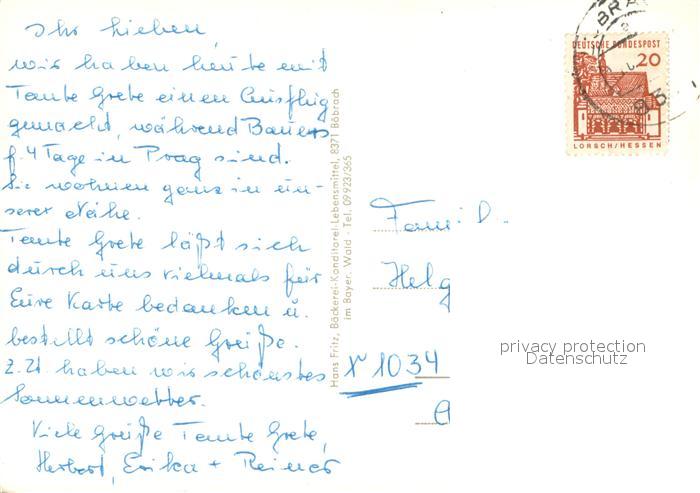 Ihr Lieben,
wir haben heute mit
Tante Grete einen Ausflug
gemacht, während Bauers
f. 4 Tage in Prag sind.
Sie wohnen ganz in un-
serer Nähe.
Tante Grete läßt sich
durch uns vielmals für
Eure Karte bedanken u.
bestellt schöne Grüße.
z. Zt. haben wir schönstes
Sonnenwetter.
Viele Grüße Tante Grete,
Herbert, Erika + Reiner
Hans Fritz, Bäckerei-Konditorei-Lebensmittel, 8371 Böbrach
im Bayer. Wald - Tel. 09923/365
DEUTSCHE BUNDESPOST
20
LORSCH/HESSEN
Fami
Helg
1034
privacy protection
Datenschutz